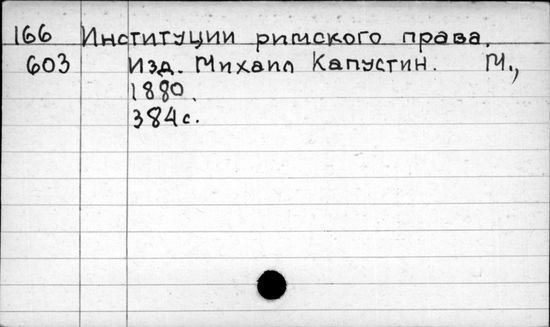 166 Институции римского права.
603 Изд. Михаил Капустин. М.,
1880.
384 с.